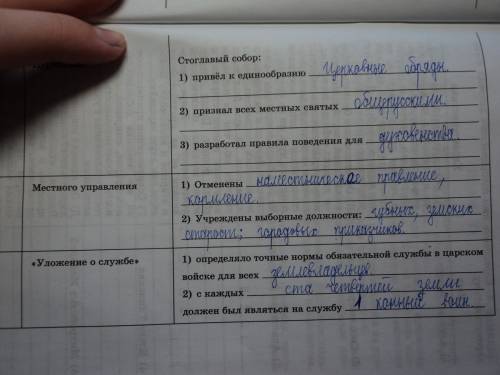 Стоглавый собор:
1) привёл к единообразию церковные обряды.
2) признал всех местных святых общерусскими.
3) разработал правила поведения для духовенства
Местного управления
1) Отменены наместническое правление,
кормление.
2) Учреждены выборные должности: губных, земских
старост; городовых приказчиков.
«Уложение о службе»
1) определяло точные нормы обязательной службы в царском
войске для всех землевладельцев.
2) с каждых ста четвертей земли
должен был являться на службу 1 конный воин.